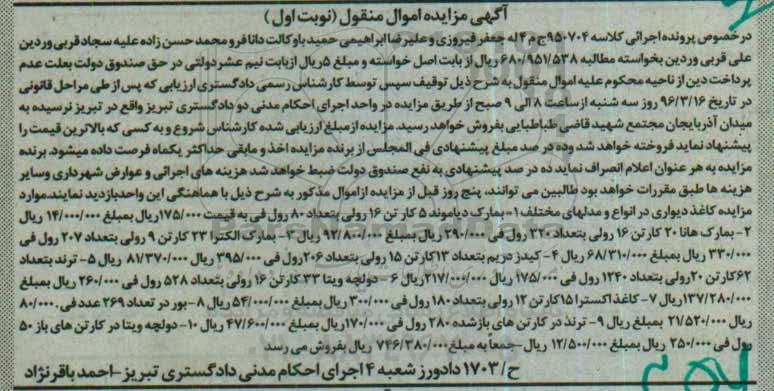 آگهی مزایده اموال منقول (نوبت اول)
درخصوص پرونده اجرائی کلاسه ۹۵۰۷۰۴ج م ۴ له جعفر فیروزی و علیرضا ابراهیمی حمید با وکالت دانا فر و محمد حسن زاده علیه سجاد قربی وردین
علی قربی وردین بخواسته مطالبه ۶۸۰/۹۵۱/۵۳۸ ریال از بابت اصل خواسته و مبلغ ۵ریال ازبابت نیم عشردولتی در حق صندوق دولت بعلت عدم
پرداخت دین از ناحیه محکوم علیه اموال منقول به شرح ذیل توقیف سپس توسط کارشناس رسمی دادگستری ارزیابی که پس از طی مراحل قانونی
در تاریخ ۹۶/۳/۱۶ روز سه شنبه ازساعت ۸ الی ۹ صبح از طریق مزایده در واحد اجرای احکام مدنی دو دادگستری تبریز واقع در تبریز نرسیده به
میدان آذربایجان مجتمع شهید قاضی طباطبایی بفروش خواهد رسید. مزایده ازمبلغ ارزیابی شده کارشناس شروع و به کسی که بالاترین قیمت را
پیشنهاد نماید فروخته خواهد شد وده در صد مبلغ پیشنهادی فی المجلس از برنده مزایده اخذ و مابقی حداکثر یکماه فرصت داده میشود. برنده
مزایده به هر عنوان اعلام انصراف نماید ده در صد پیشنهادی به نفع صندوق دولت ضبط خواهد شد هزینه های اجرائی و عوارض شهرداری وسایر
هزینه ها طبق مقررات خواهد بود طالبین می توانند، پنج روز قبل از مزایده ازاموال مذکور به شرح ذیل با هماهنگی این واحدبازدید نمایند.موارد
مزایده کاغذ دیواری در انواع و مدلهای مختلف ۱- بمارک دیاموند ۵ کارتن ۱۶ رولی بتعداد ۸۰ رول فی به قیمت ۱۷۵/۰۰۰ریال بمبلغ ۱۴/۰۰۰/۰۰۰ ریال
۲- بمارک هانا ۲۰ کارتن ۱۶ رولی بتعداد ۳۲۰ رول فی ۲۹۰/۰۰۰ ریال بمبلغ ۹۲/۸۰۰/۰۰۰ ریال ۳- بمارک الکترا ۲۳ کارتن ۹ رولی بتعداد ۲۰۷ رول فی
۳۳۰/۰۰۰ ریال بمبلغ ۶۸/۳۱۰/۰۰۰ ریال ۴- کیدز دریم بتعداد ۱۳کارتن ۱۵ رولی بتعداد ۲۰۶رول فی ۳۹۵/۰۰۰ ریال ۸۱/۳۷۰/۰۰۰ ریال ۵- ترند بتعداد
۶۲کارتن ۲۰رولی بتعداد ۱۲۴۰ رول فی ۱۷۵/۰۰۰ ریال ۲۱۷/۰۰۰/۰۰۰ریال ۶- دولچه ویتا ۳۳ کارتن ۱۶ رولی بتعداد ۵۲۸ رول فی ۲۶۰/۰۰۰ ریال بمبلغ
۱۳۷/۲۸۰/۰۰۰ریال ۷- کاغذ اکسترا ۱۵کارتن ۱۲ رولی بتعداد ۱۸۰ رول فی ۳۰۰/۰۰۰ ریال بمبلغ ۵۴/۰۰۰/۰۰۰ ریال ۸- بور در تعداد ۲۶۹ عدد فی ۸۰/۰۰۰
ریال ۲۱/۵۲۰/۰۰۰ بمبلغ ریال ۹- ترند در کارتن های بازشده ۲۸۰ رول فی ۱۷۰/۰۰۰ریال بمبلغ ۴۷/۶۰۰/۰۰۰ ریال ۱۰- دولچه ویتا در کارتن های باز ۵۰
رول فی ۲۵۰/۰۰۰ ریال بمبلغ ۱۲/۵۰۰/۰۰۰ ریال -جمعاً به مبلغ ۷۴۶/۳۸۰/۰۰۰ ریال بفروش می رسد
ح/۱۷۰۳ دادورز شعبه ۴ اجرای احکام مدنی دادگستری تبریز-احمد باقرنژاد